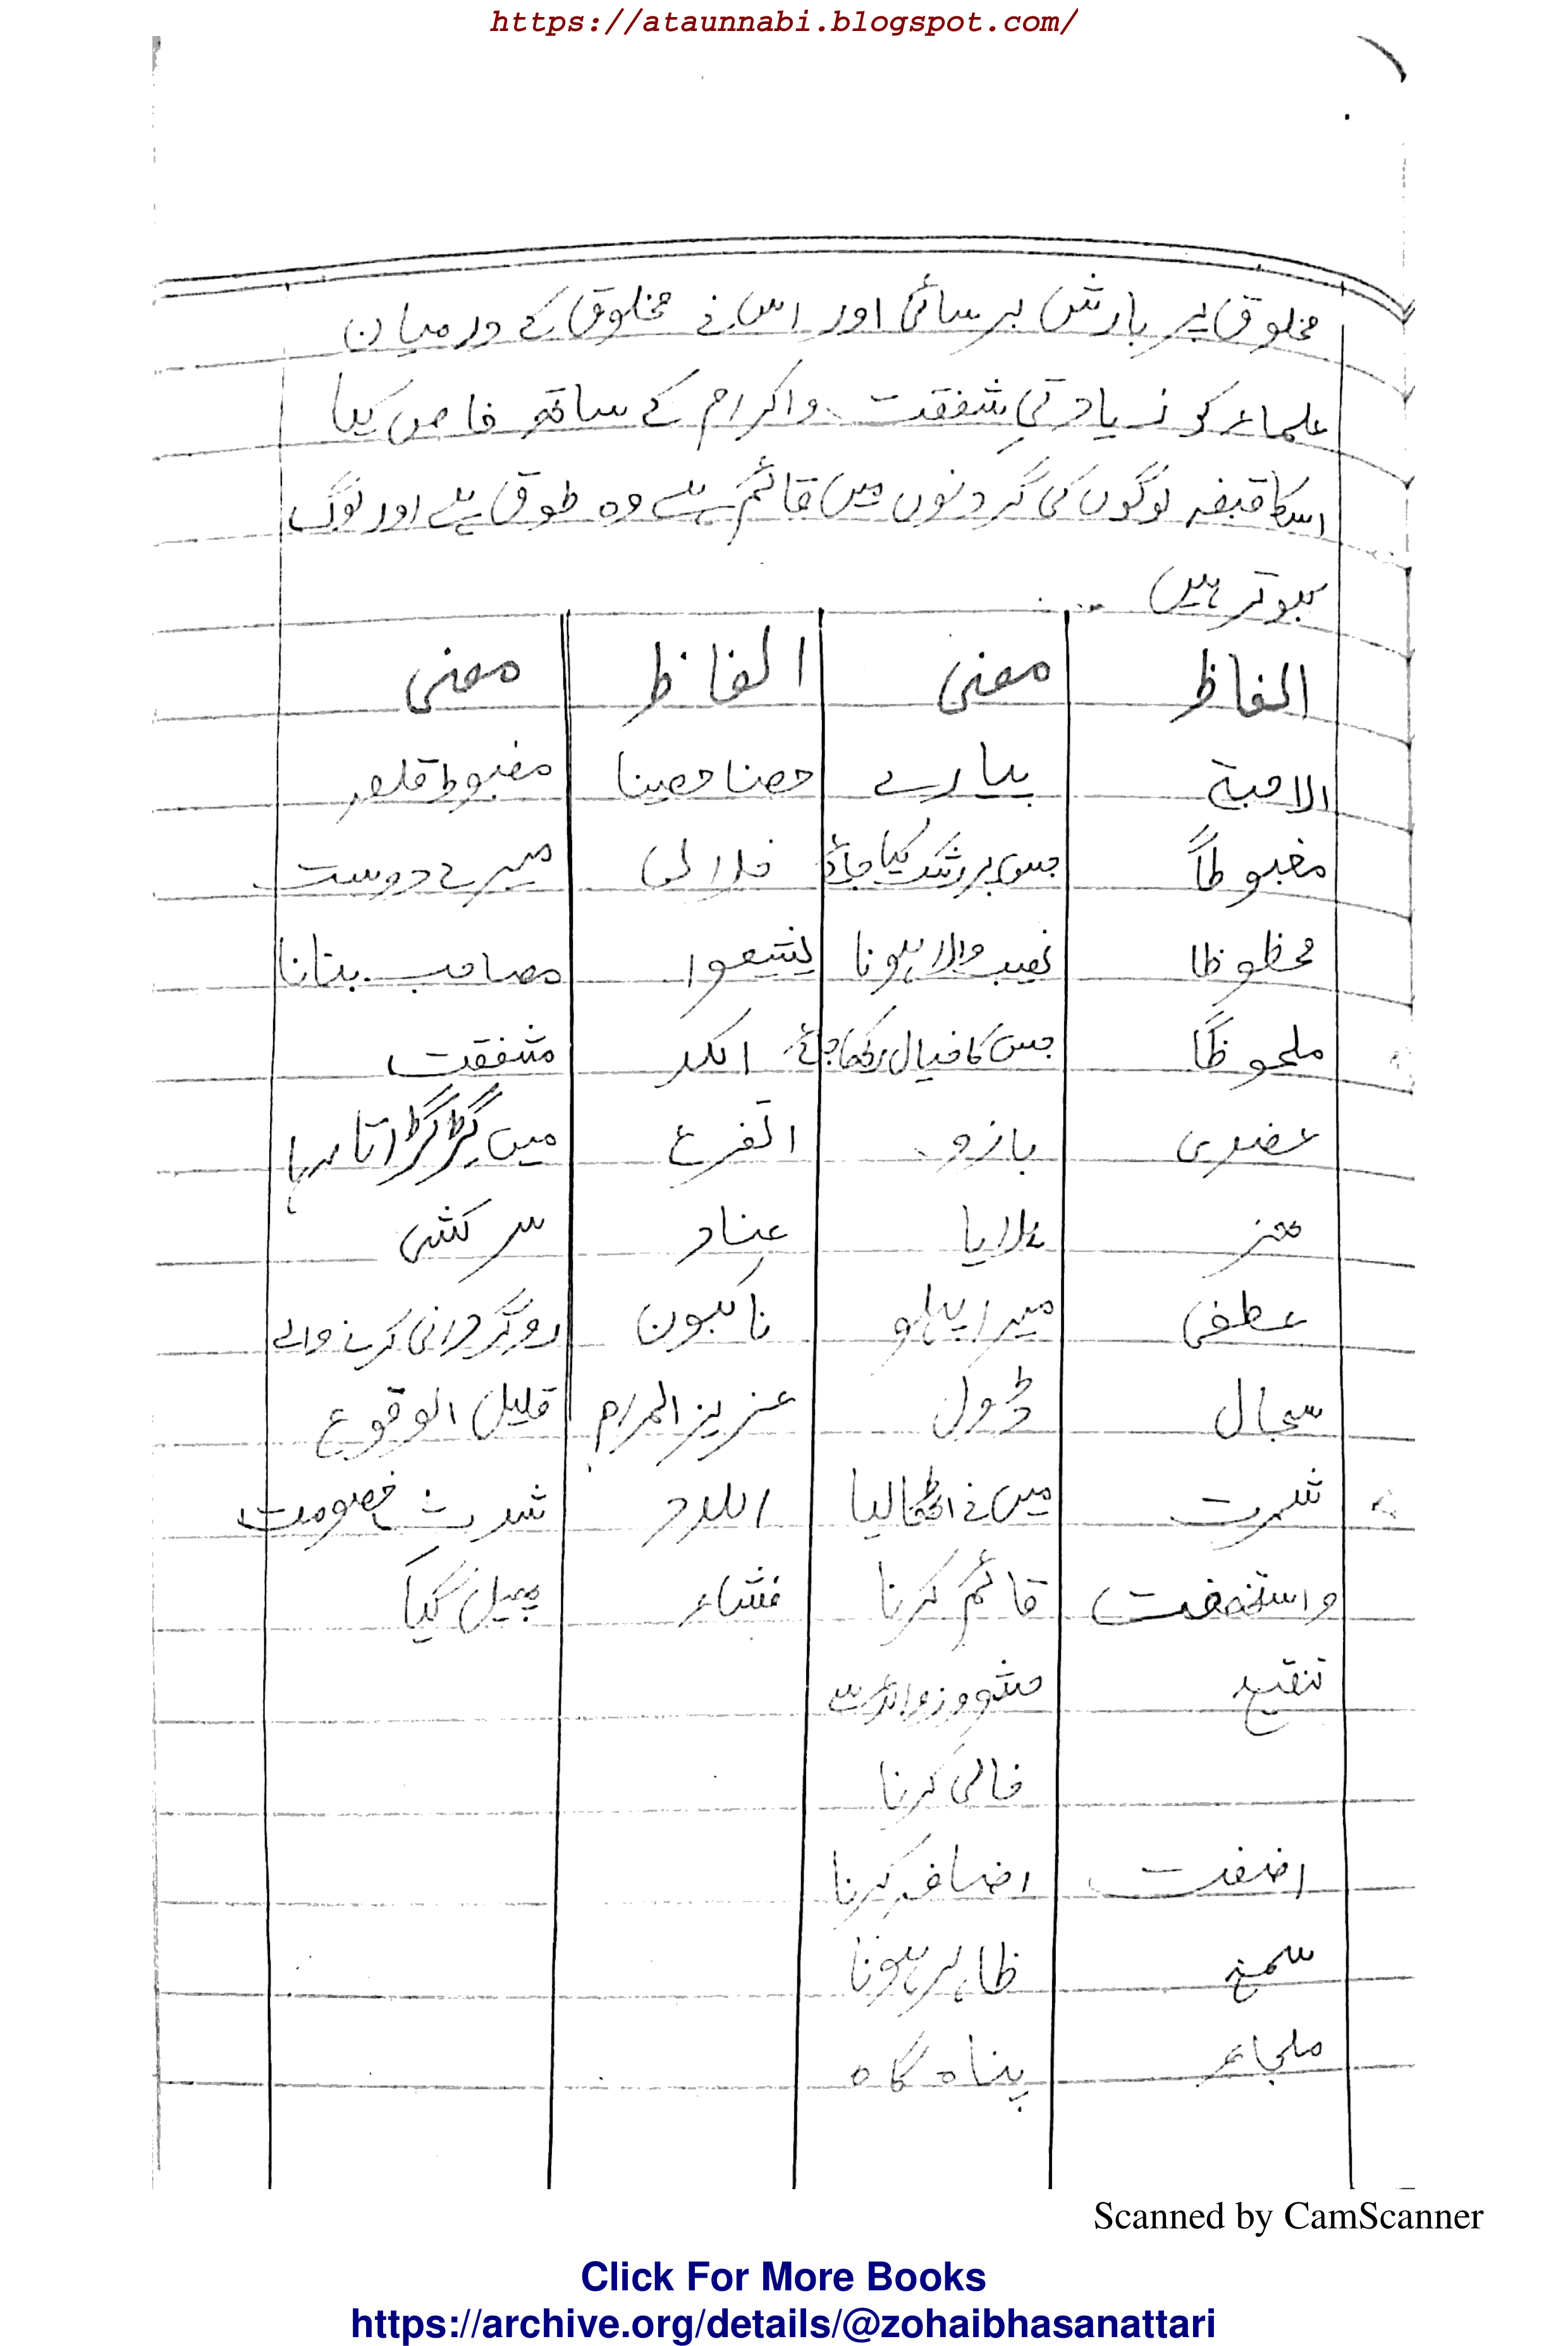 https://ataunnabi.blogspot.com/
مخلوق پر بارش برسائی اور اس نے مخلوق کے درمیان
علماء کو زیادتیِ شفقت و اکرام کے ساتھ خاص کیا
اسکا قبضہ لوگوں کی گردنوں میں قائم ہے وہ طوق ہے اور لوگ
کبوتر ہیں
الفاظ معنی الفاظ معنی
الاحبۃ پیارے حصنا حصینا مضبوط قلعہ
مغبوطاً جس پر رشک کیا جائے خلالی میرے دوست
محظوظا نصیب والا ہونا لیشیعوا مصاحب بنانا
ملحوظاً جس کا خیال رکھا جائے مشفقت
عضدی بازو اتضرع میں گڑگڑاتا رہا
ھز ہلایا عناد سرکشی
عطفی میرا پہلو ناکبون روگردانی کرنے والے
سجال ڈول عزیز المرام قلیل الوقوع
شمرت میں نے اٹھا لیا اللدد شدت خصومت
قائم کرنا فشاء پھیل گیا
تنقیح حشو و زوائد سے
خالی کرنا
اضفت اضافہ کرنا
سمح ظاہر ہونا
ملجاء پناہ گاہ
Scanned by CamScanner
Click For More Books
https://archive.org/details/@zohaibhasanattari